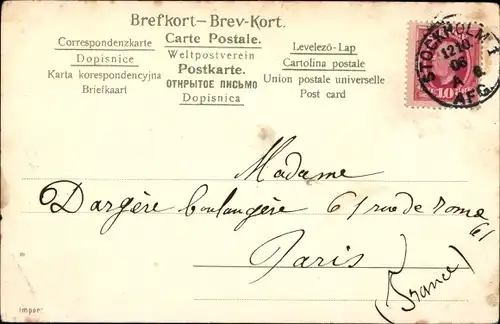 Brefkort—Brev-Kort.
Correspondenzkarte
Dopisnice
Karta korespondencyjna
Briefkaart
Carte Postale.
Weltpostverein
Postkarte.
ОТКРЫТОЕ ПИСЬМО
Dopisnica
Levelező-Lap
Cartolina postale
Union postale universelle
Post card
STOCKHOLM 1
AFG.
10
Madame
Dargère boulangère 61 rue de Rome
61
Paris
(France)
Import